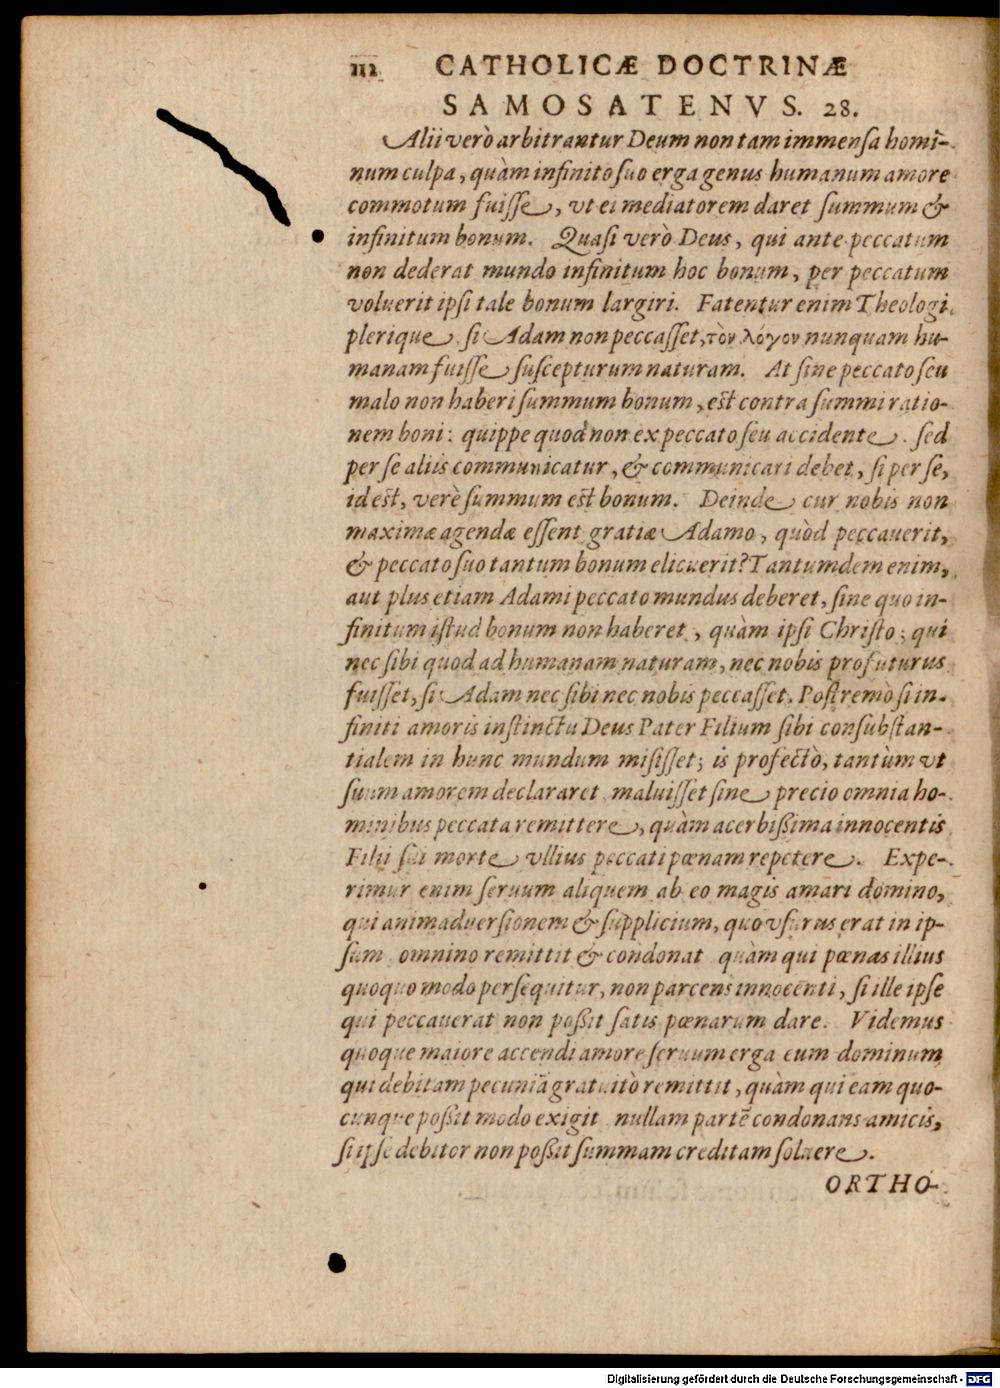 112 CATHOLICÆ DOCTRINÆ
SAMOSATENVS. 28.
Alii verò arbitrantur Deum non tam immensa homi-
num culpa, quàm infinito suo erga genus humanum amore
commotum fuisse, vt ei mediatorem daret summum &
infinitum bonum. Quasi verò Deus, qui ante peccatum
non dederat mundo infinitum hoc bonum, per peccatum
voluerit ipsi tale bonum largiri. Fatentur enim Theologi
plerique, si Adam non peccasset, τὸν λόγον nunquam hu-
manam fuisse suscepturum naturam. At sine peccato seu
malo non haberi summum bonum, est contra summi ratio-
nem boni: quippe quod non ex peccato seu accidente, sed
per se aliis communicatur, & communicari debet, si per se,
id est, verè summum est bonum. Deinde cur nobis non
maximæ agendæ essent gratiæ Adamo, quòd peccauerit,
& peccato suo tantum bonum elicuerit? Tantumdem enim,
aut plus etiam Adami peccato mundus deberet, sine quo in-
finitum istud bonum non haberet, quàm ipsi Christo; qui
nec sibi quod ad humanam naturam, nec nobis profuturus
fuisset, si Adam nec sibi nec nobis peccasset. Postremò si in-
finiti amoris instinctu Deus Pater Filium sibi consubstan-
tialem in hunc mundum misisset; is profectò, tantùm vt
suum amorem declararet, maluisset sine precio omnia ho-
minibus peccata remittere, quàm acerbißima innocentis
Filii sui morte vllius peccati pœnam repetere. Expe-
rimur enim seruum aliquem ab eo magis amari domino,
qui animaduersionem & supplicium, quo vsurus erat in ip-
sum, omnino remittit & condonat, quàm qui pœnas illius
quoquo modo persequitur, non parcens innocenti, si ille ipse
qui peccauerat non poßit satis pœnarum dare. Videmus
quoque maiore accendi amore seruum erga eum dominum
qui debitam pecuniā gratuitò remittit, quàm qui eam quo-
cunque poßit modo exigit, nullam partē condonans amicis,
si ipse debitor non poßit summam creditam soluere.
ORTHO-
Digitalisierung gefördert durch die Deutsche Forschungsgemeinschaft - DFG